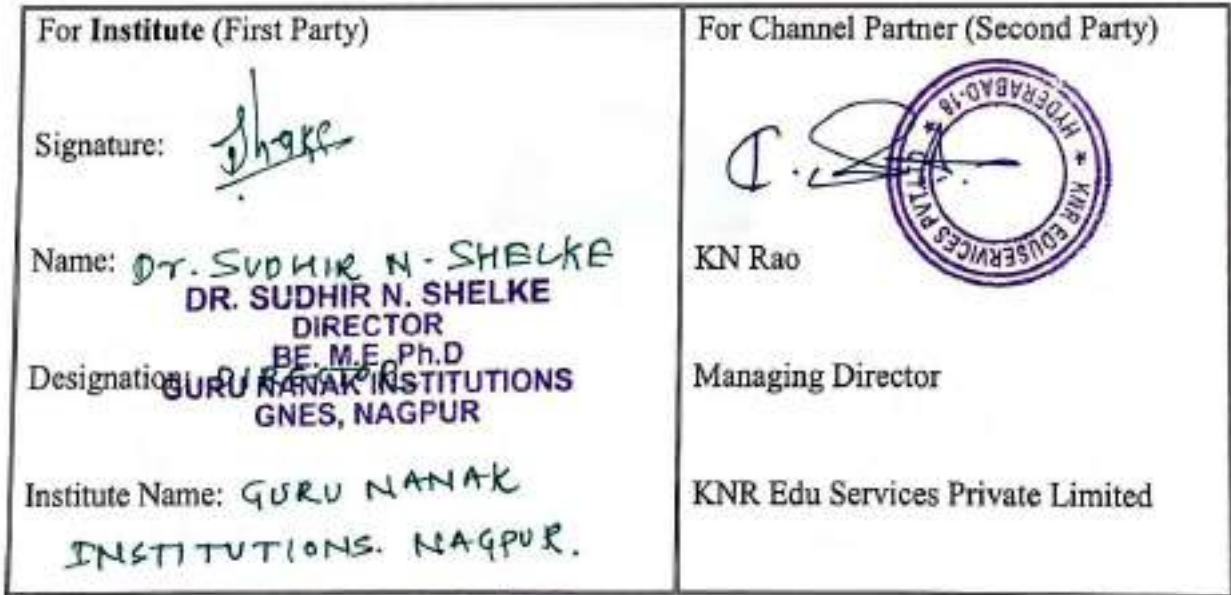 For Institute (First Party)
Signature:
Name: Dr. SUDHIR N. SHELKE
DR. SUDHIR N. SHELKE
DIRECTOR
BE. M.E. Ph.D
Designation: DIRECTOR
GURU NANAK INSTITUTIONS
GNES, NAGPUR
Institute Name: GURU NANAK
INSTITUTIONS. NAGPUR.
For Channel Partner (Second Party)
KNR EDUSERVICES PVT. LTD. * HYDERABAD-18 *
KN Rao
Managing Director
KNR Edu Services Private Limited